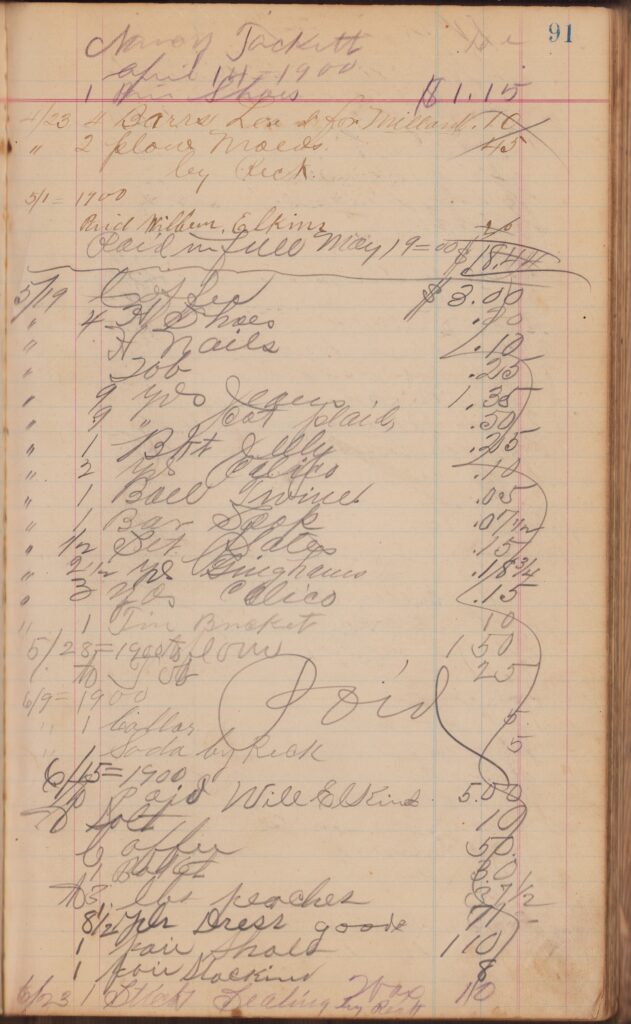 91
Nancy Tackett
april 14 - 1900
1 Pair Shoes $1.15
4/23 4 Barrs for Millard .10
" 2 plow Molds. 45
by Rick.
5/1 = 1900
Paid Wilburn Elkins
Paid in full May 19=00 $18.44
5/19 $3.00
" 4 H Shoes
" H Nails .10
" Tob .25
" 9 yds Jeans 1.35
" 9 " Cot plaid, .50
" 1 Bkt Jelly .25
" 2 yds Calico .10
" 1 Ball Twine .05
" 1 Bar Soap .07 1/2
" 1/2 Set Plates .15
" 2 1/2 yds Ginghams .18 3/4
" 3 Yds Calico .15
" 1 Tin Bucket 10
5/28=1900 to flour 1 50
to Tob 25
6/9=1900 Paid
" 1 Collar 5
" Soda by Rick 5
6/15=1900
To Paid Will Elkins 5.00
To Salt 10
Coffee 50
1
To 3 lbs peaches 37 1/2
8 1/2 yds Dress goods 77
1 pair Shoes 1 10
1 pair Stockins 8
6/23 1 Sealing Wax by Rick 10